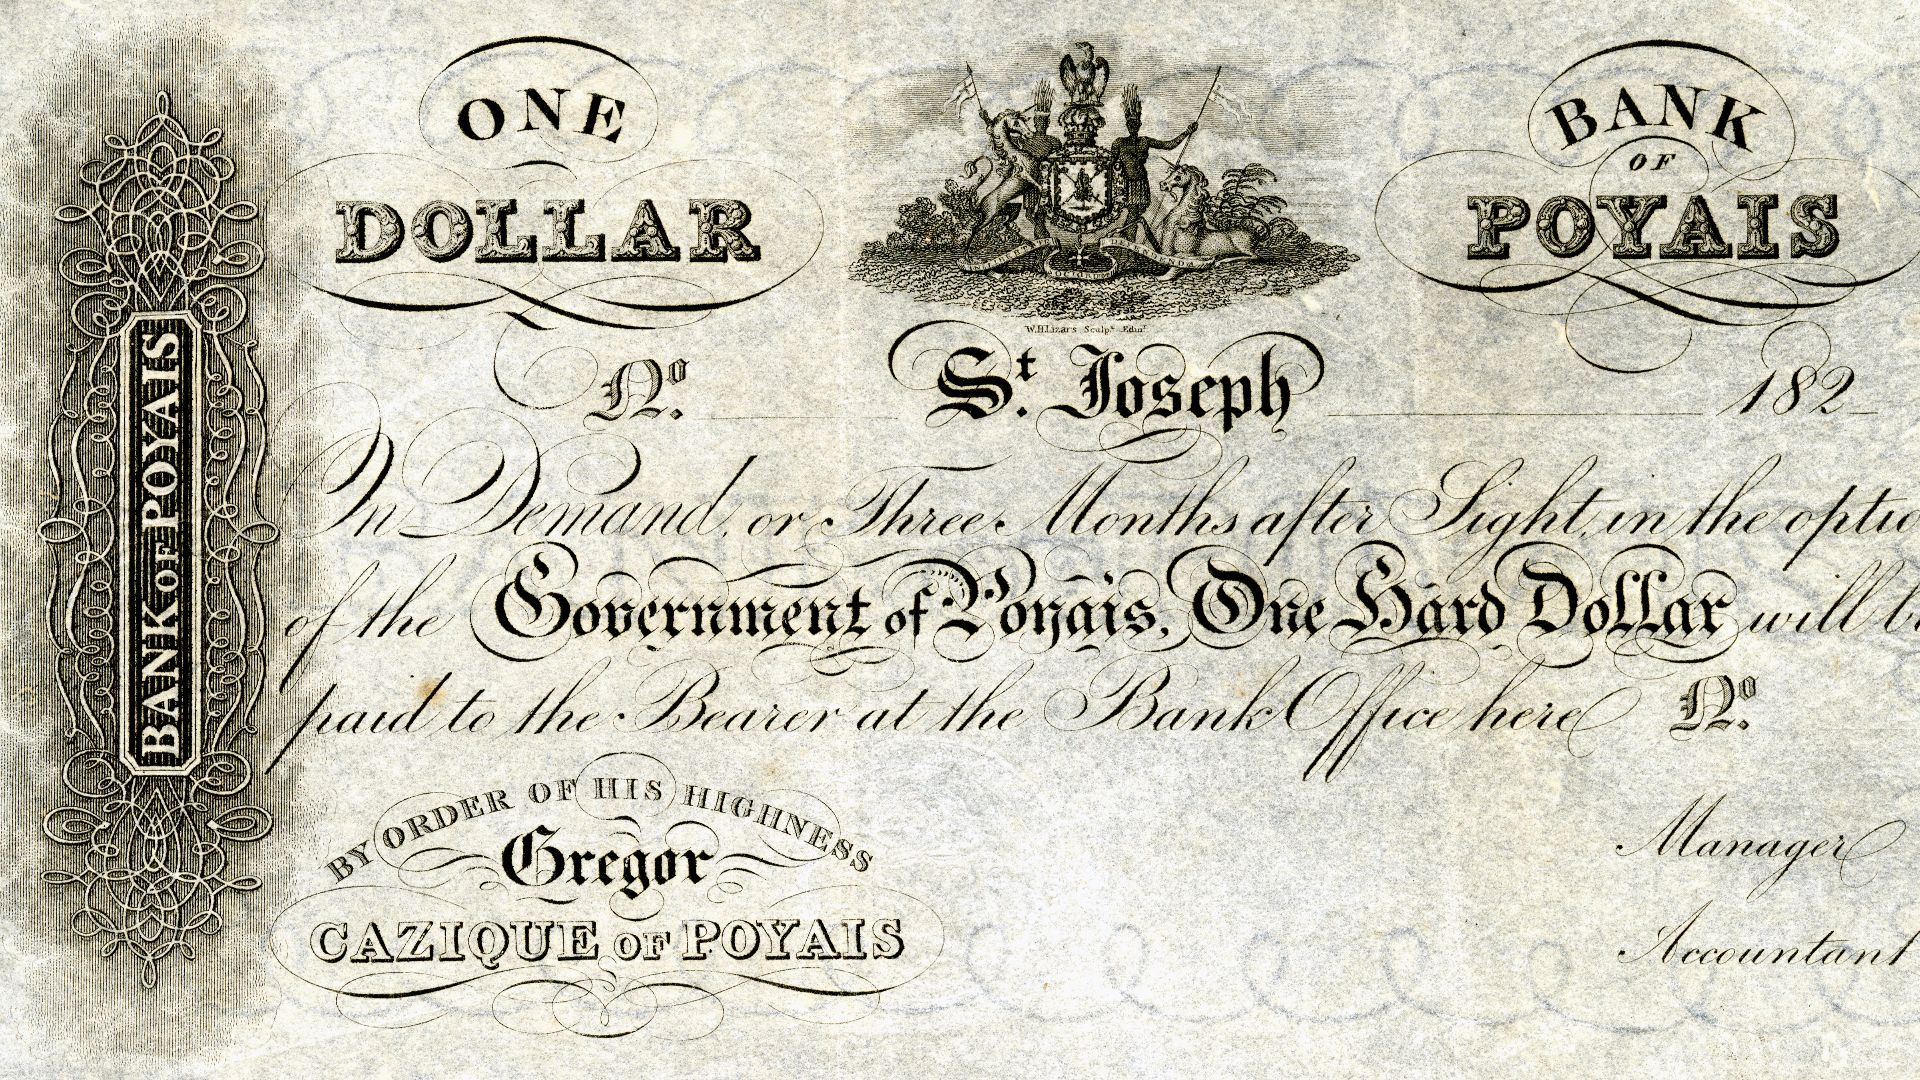 ONE
DOLLAR
BANK
OF
POYAIS
W.H.Lizars Sculpt. Edinr.
No. St. Joseph 182
On Demand, or Three Months after Sight, in the optio
of the Government of Poyais, One Hard Dollar will b
paid to the Bearer at the Bank Office here No.
BY ORDER OF HIS HIGHNESS
Gregor
CAZIQUE OF POYAIS
Manager
Accountant
BANK OF POYAIS